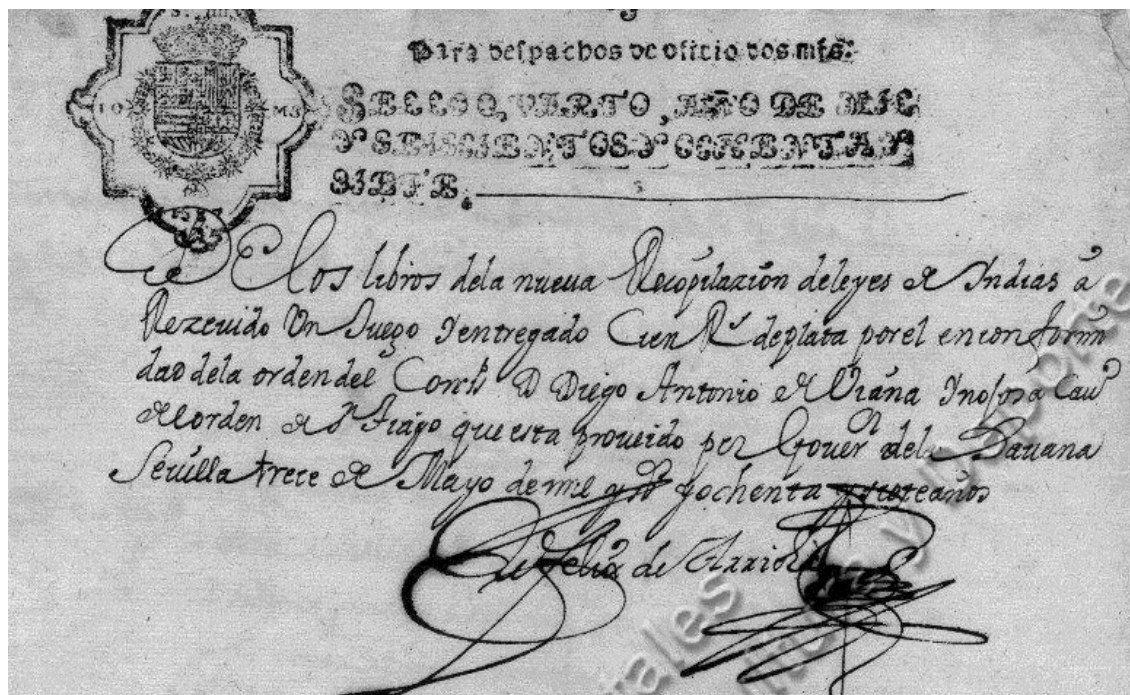 Para despachos de oficio dos mrs.
SELLO QVARTO, AÑO DE MIL
Y SEISCIENTOS Y OCHENTA Y
SIETE.
1687
De Los libros dela nueua Recopilazion deleyes de Indias a
Rezeuido Un Juego Y entregado Cien Rs. deplata porel enconformi
dad dela orden del Consº D Diego Antonio de Viana Ynojosa Cauº
del orden de S. Tiago que esta proueido por Gouer.on dela Hauana
Seuilla trece de Mayo de mil y sºs y ochenta y siete años
de Arriola